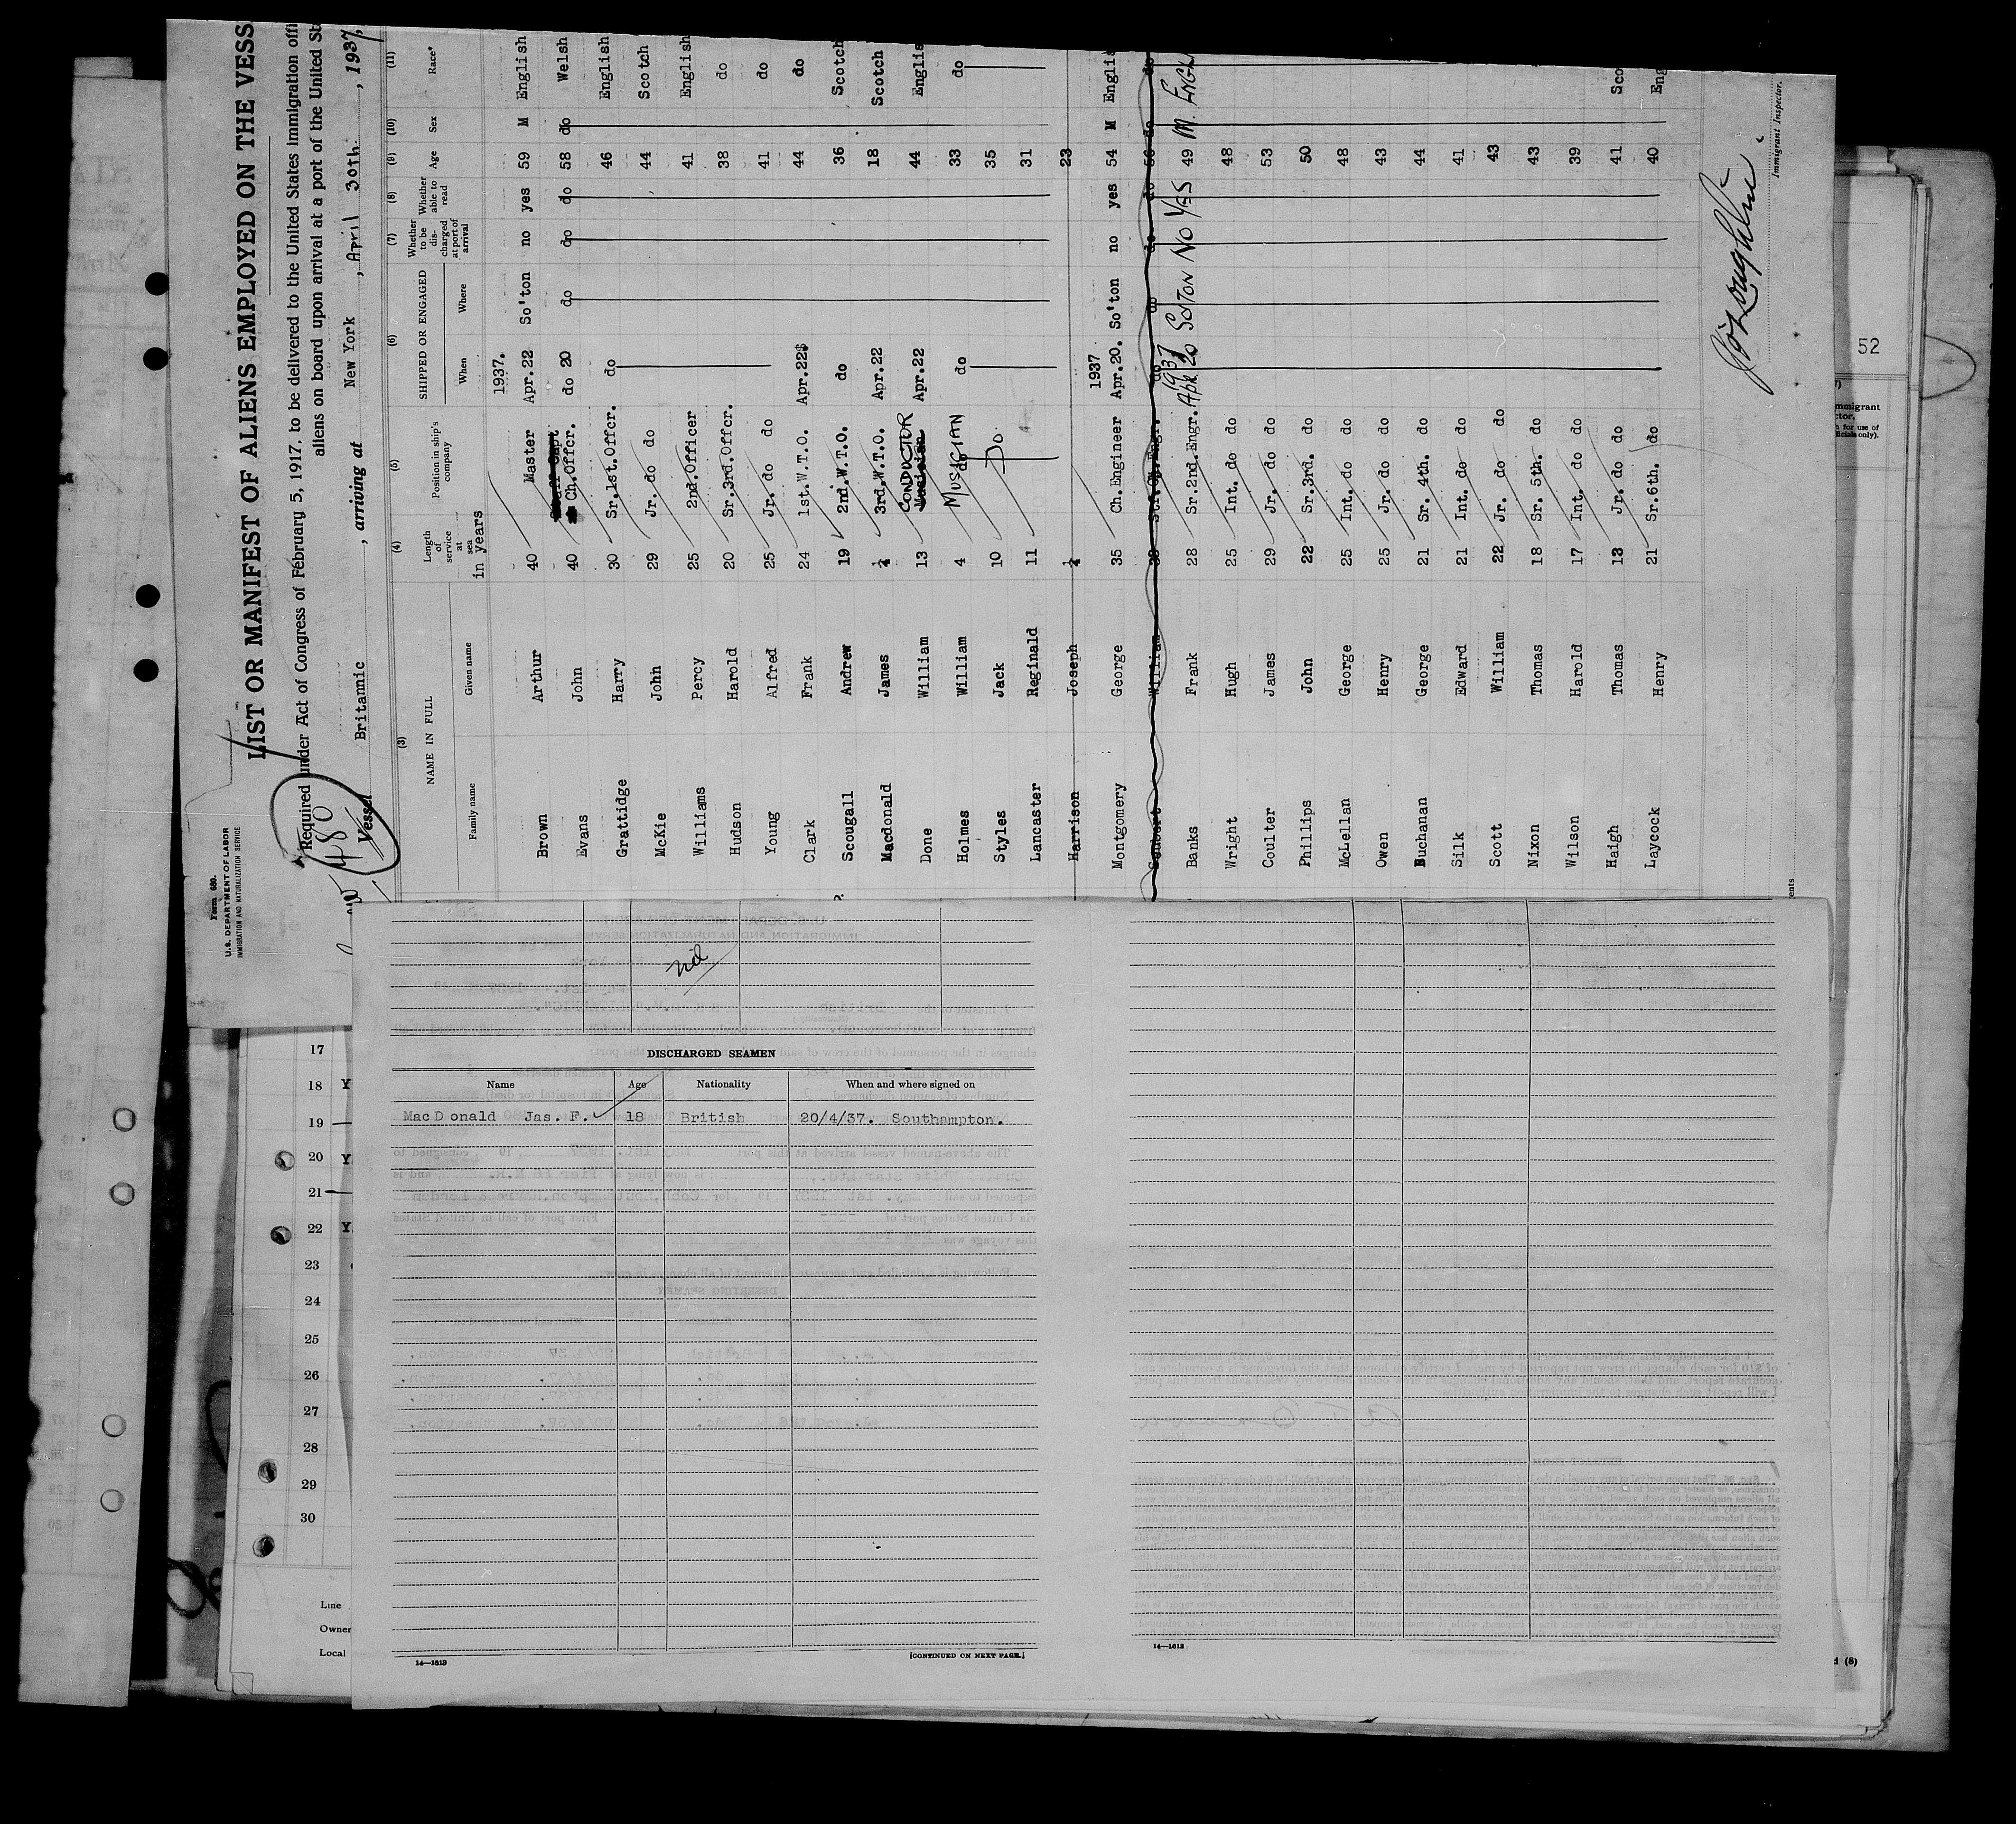 Form 680.
U.S. DEPARTMENT OF LABOR
IMMIGRATION AND NATURALIZATION SERVICE
LIST OR MANIFEST OF ALIENS EMPLOYED ON THE VESS
Required under Act of Congress of February 5, 1917, to be delivered to the United States immigration offi
aliens on board upon arrival at a port of the United St
480
Vessel Britannic, arriving at New York, April 30th, 1937,
(3) (4) (5) (6) (7) (8) (9) (10) (11)
NAME IN FULL
Family name Given name
Length of service at sea
in years
Position in ship's company
SHIPPED OR ENGAGED
When Where
Whether to be discharged at port of arrival
Whether able to read
Age
Sex
Race*
1937.
Brown Arthur 40 Master Apr.22 So'ton no yes 59 M English
Evans John 40 Staff Capt Ch.Offcr. do 20 do do do 58 do Welsh
Grattidge Harry 30 Sr.1st.Offcr. do 46 English
McKie John 29 Jr. do do 44 Scotch
Williams Percy 25 2nd.Officer 41 English
Hudson Harold 20 Sr.3rd.Offcr. 38 do
Young Alfred 25 Jr. do do 41 do
Clark Frank 24 1st.W.T.O. Apr.22 44 do
Scougall Andrew 19 2nd.W.T.O. do 36 Scotch
Macdonald James ¼ 3rd.W.T.O. Apr.22 18 Scotch
Done William 13 CONDUCTOR Musician Apr.22 44 Englis
Holmes William 4 MUSICIAN do do 33 do
Styles Jack 10 Do. 35
Lancaster Reginald 11 31
Harrison Joseph ¼ 23
1937
Montgomery George 35 Ch.Engineer Apr.20. So'ton no yes 54 M Englis
William do do do do do do
1937
Banks Frank 28 Sr.2nd.Engr. Apr 20 SOTON NO YES 49 M. ENGL
Wright Hugh 25 Int. do do 48
Coulter James 29 Jr. do do 53
Phillips John 22 Sr.3rd. do 50
McLellan George 25 Int. do do 48
Owen Henry 25 Jr. do do 43
Buchanan George 21 Sr. 4th. do 44
Silk Edward 21 Int. do do 41
Scott William 22 Jr. do do 43
Nixon Thomas 18 Sr. 5th. do 43
Wilson Harold 17 Int. do do 39
Haigh Thomas 13 Jr. do do 41 Sco
Laycock Henry 21 Sr.6th. do 40 Eng
Immigrant Inspector.
ents
52
mmigrant
ctor.
n for use of
icials only).
nil
DISCHARGED SEAMEN
Name Age Nationality When and where signed on
MacDonald Jas. F. 18 British 20/4/37. Southampton.
14—1613
[CONTINUED ON NEXT PAGE.]
14—1613
17
18 Y
19
20 Y
21
22 Y
23
24
25
26
27
28
29
30
Line
Owner
Local
d (8)